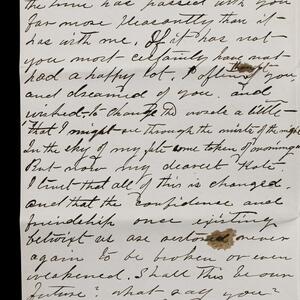 the time has passed with you
far more pleasantly than it
has with me. If it has not
you most certainly have not
had a happy lot. I often thought you
and dreamed of you. and
wished to change the a little
that I might see through the mists of the night
In the sky of my fate some token of morning
But now my dearest Kate.
I trust that all of this is changed.
and that the confidence and
friendship once existing
betwixt us are restored never
again to be broken or even
weakened. Shall this be our
future? what say you?